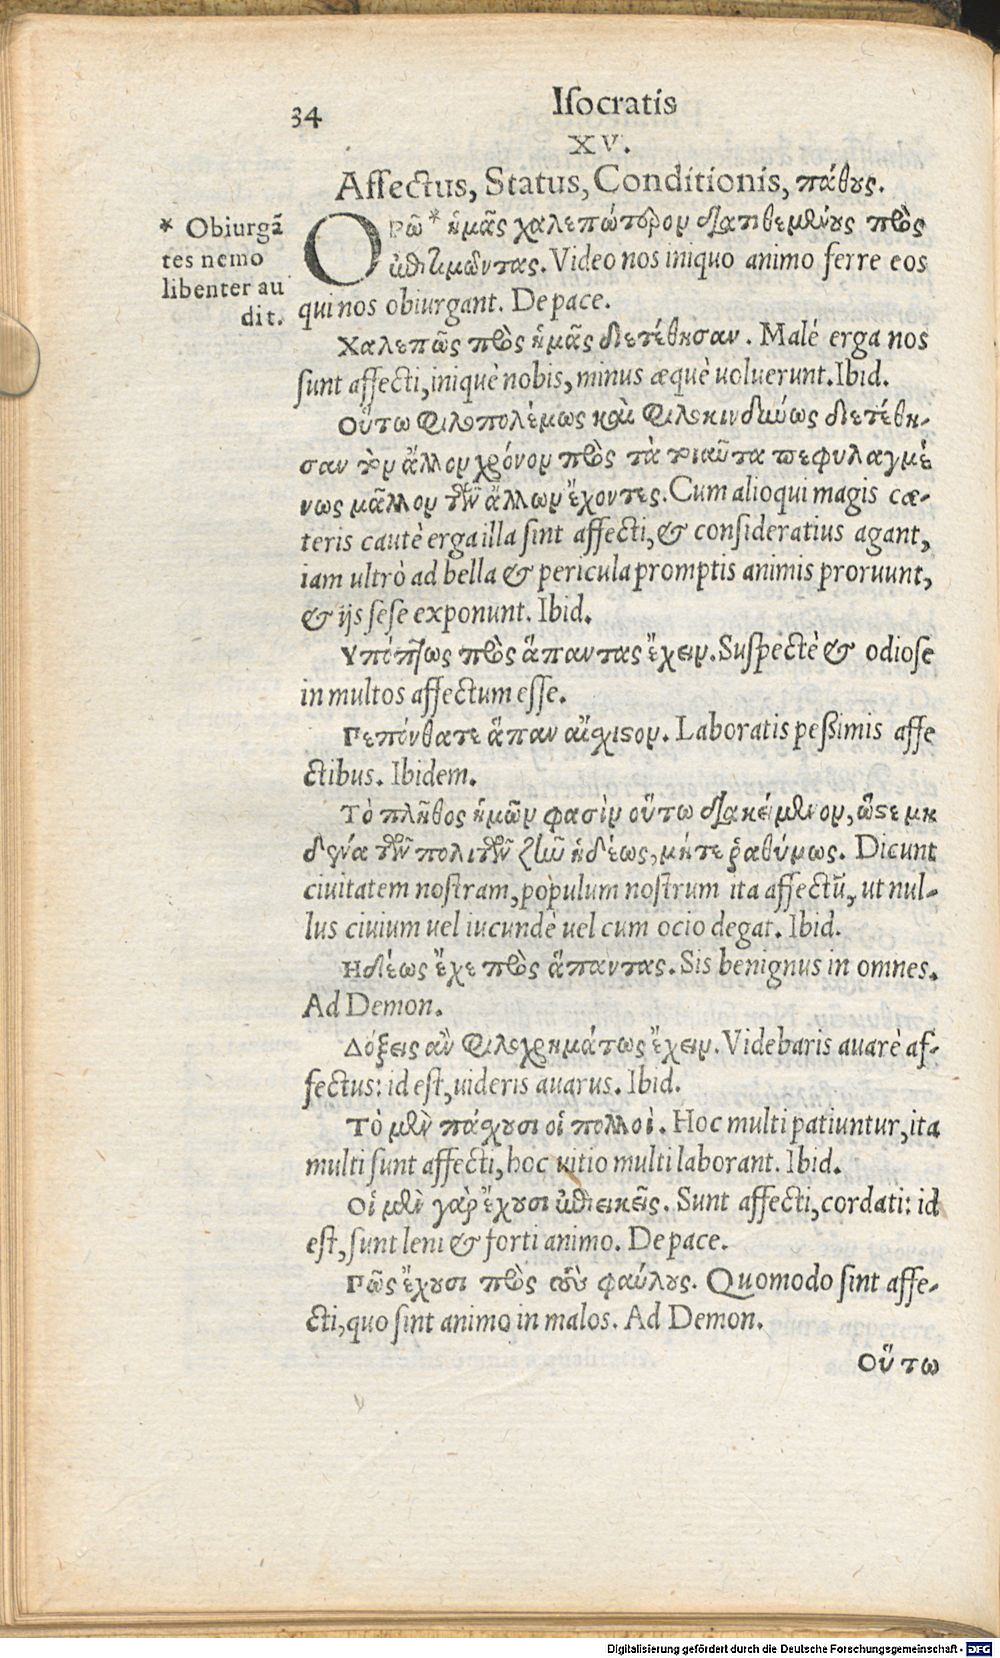 34
Isocratis
XV.
Affectus, Status, Conditionis, πάθους.
* Obiurgã
tes nemo
libenter au
dit.
Ορῶ* ἡμᾶς χαλεπώτερον διατιθεμένους πρὸς
ἐπιτιμῶντας. Video nos iniquo animo ferre eos
qui nos obiurgant. De pace.
Χαλεπῶς πρὸς ἡμᾶς διετέθησαν. Malé erga nos
sunt affecti, iniquè nobis, minus æquè uoluerunt. Ibid.
Οὕτω φιλοπολέμως καὶ φιλοκινδύνως διετέθη-
σαν τὸν ἄλλον χρόνον πρὸς τὰ τοιαῦτα πεφυλαγμέ
νως μᾶλλον τῶν ἄλλων ἔχοντες. Cum alioqui magis cæ-
teris cautè erga illa sint affecti, & consideratius agant,
iam ultrò ad bella & pericula promptis animis proruunt,
& ijs sese exponunt. Ibid.
Υπόπτως πρὸς ἅπαντας ἔχειν. Suspectè & odiose
in multos affectum esse.
Πεπόνθατε ἅπαν αἴσχιστον. Laboratis peßimis affe
ctibus. Ibidem.
Τὸ πλῆθος ἡμῶν φασὶν οὕτω διακείμενον, ὥστε μη
δένα τῶν πολιτῶν ζῆν ἡδέως, μήτε ῥαθύμως. Dicunt
ciuitatem nostram, populum nostrum ita affectũ, ut nul-
lus ciuium uel iucundè uel cum ocio degat. Ibid.
Ηδέως ἔχε πρὸς ἅπαντας. Sis benignus in omnes.
Ad Demon.
Δόξεις ἂν φιλοχρημάτως ἔχειν. Videbaris auarè af-
fectus: id est, uideris auarus. Ibid.
Τὸ μὲν πάσχουσι οἱ πολλοὶ. Hoc multi patiuntur, ita
multi sunt affecti, hoc uitio multi laborant. Ibid.
Οἱ μὲν γὰρ ἔχουσι ἐπιεικῶς. Sunt affecti, cordati: id
est, sunt leni & forti animo. De pace.
Πῶς ἔχουσι πρὸς τοὺς φαύλους. Quomodo sint affe-
cti, quo sint animo in malos. Ad Demon.
Οὕτω
Digitalisierung gefördert durch die Deutsche Forschungsgemeinschaft - DFG